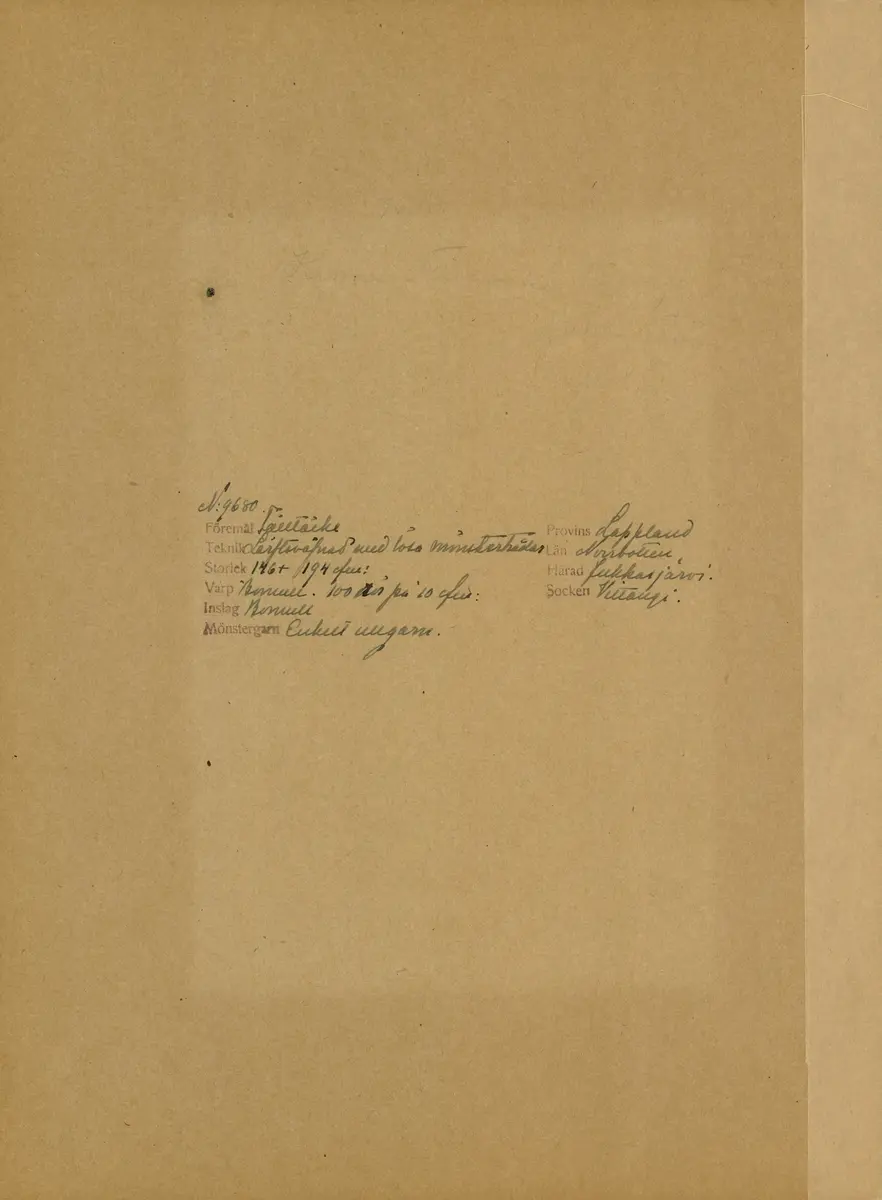 N: 9680.
Föremål Fälltäcke
Teknik Lärftsväfnad med lösa mönstertrådar
Storlek 146 + 194 c/m:
Varp Bomull. 100 trås på 10 c/m:
Inslag Bomull
Mönstergarn Enkelt ullgarn.
Provins Lappland
Län Norrbotten,
Härad Jukkasjärvi.
Socken Vittangi.